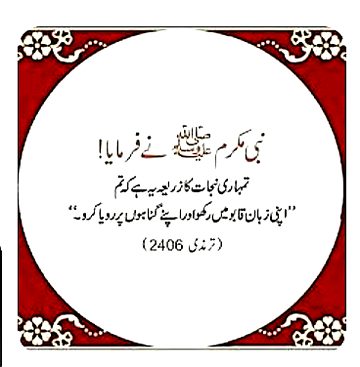 نبی مکرم ﷺ نے فرمایا!
تمہاری نجات کا ذریعہ یہ ہے کہ تم
”اپنی زبان قابو میں رکھو اور اپنے گناہوں پر رویا کرو۔“
(ترمذی 2406)